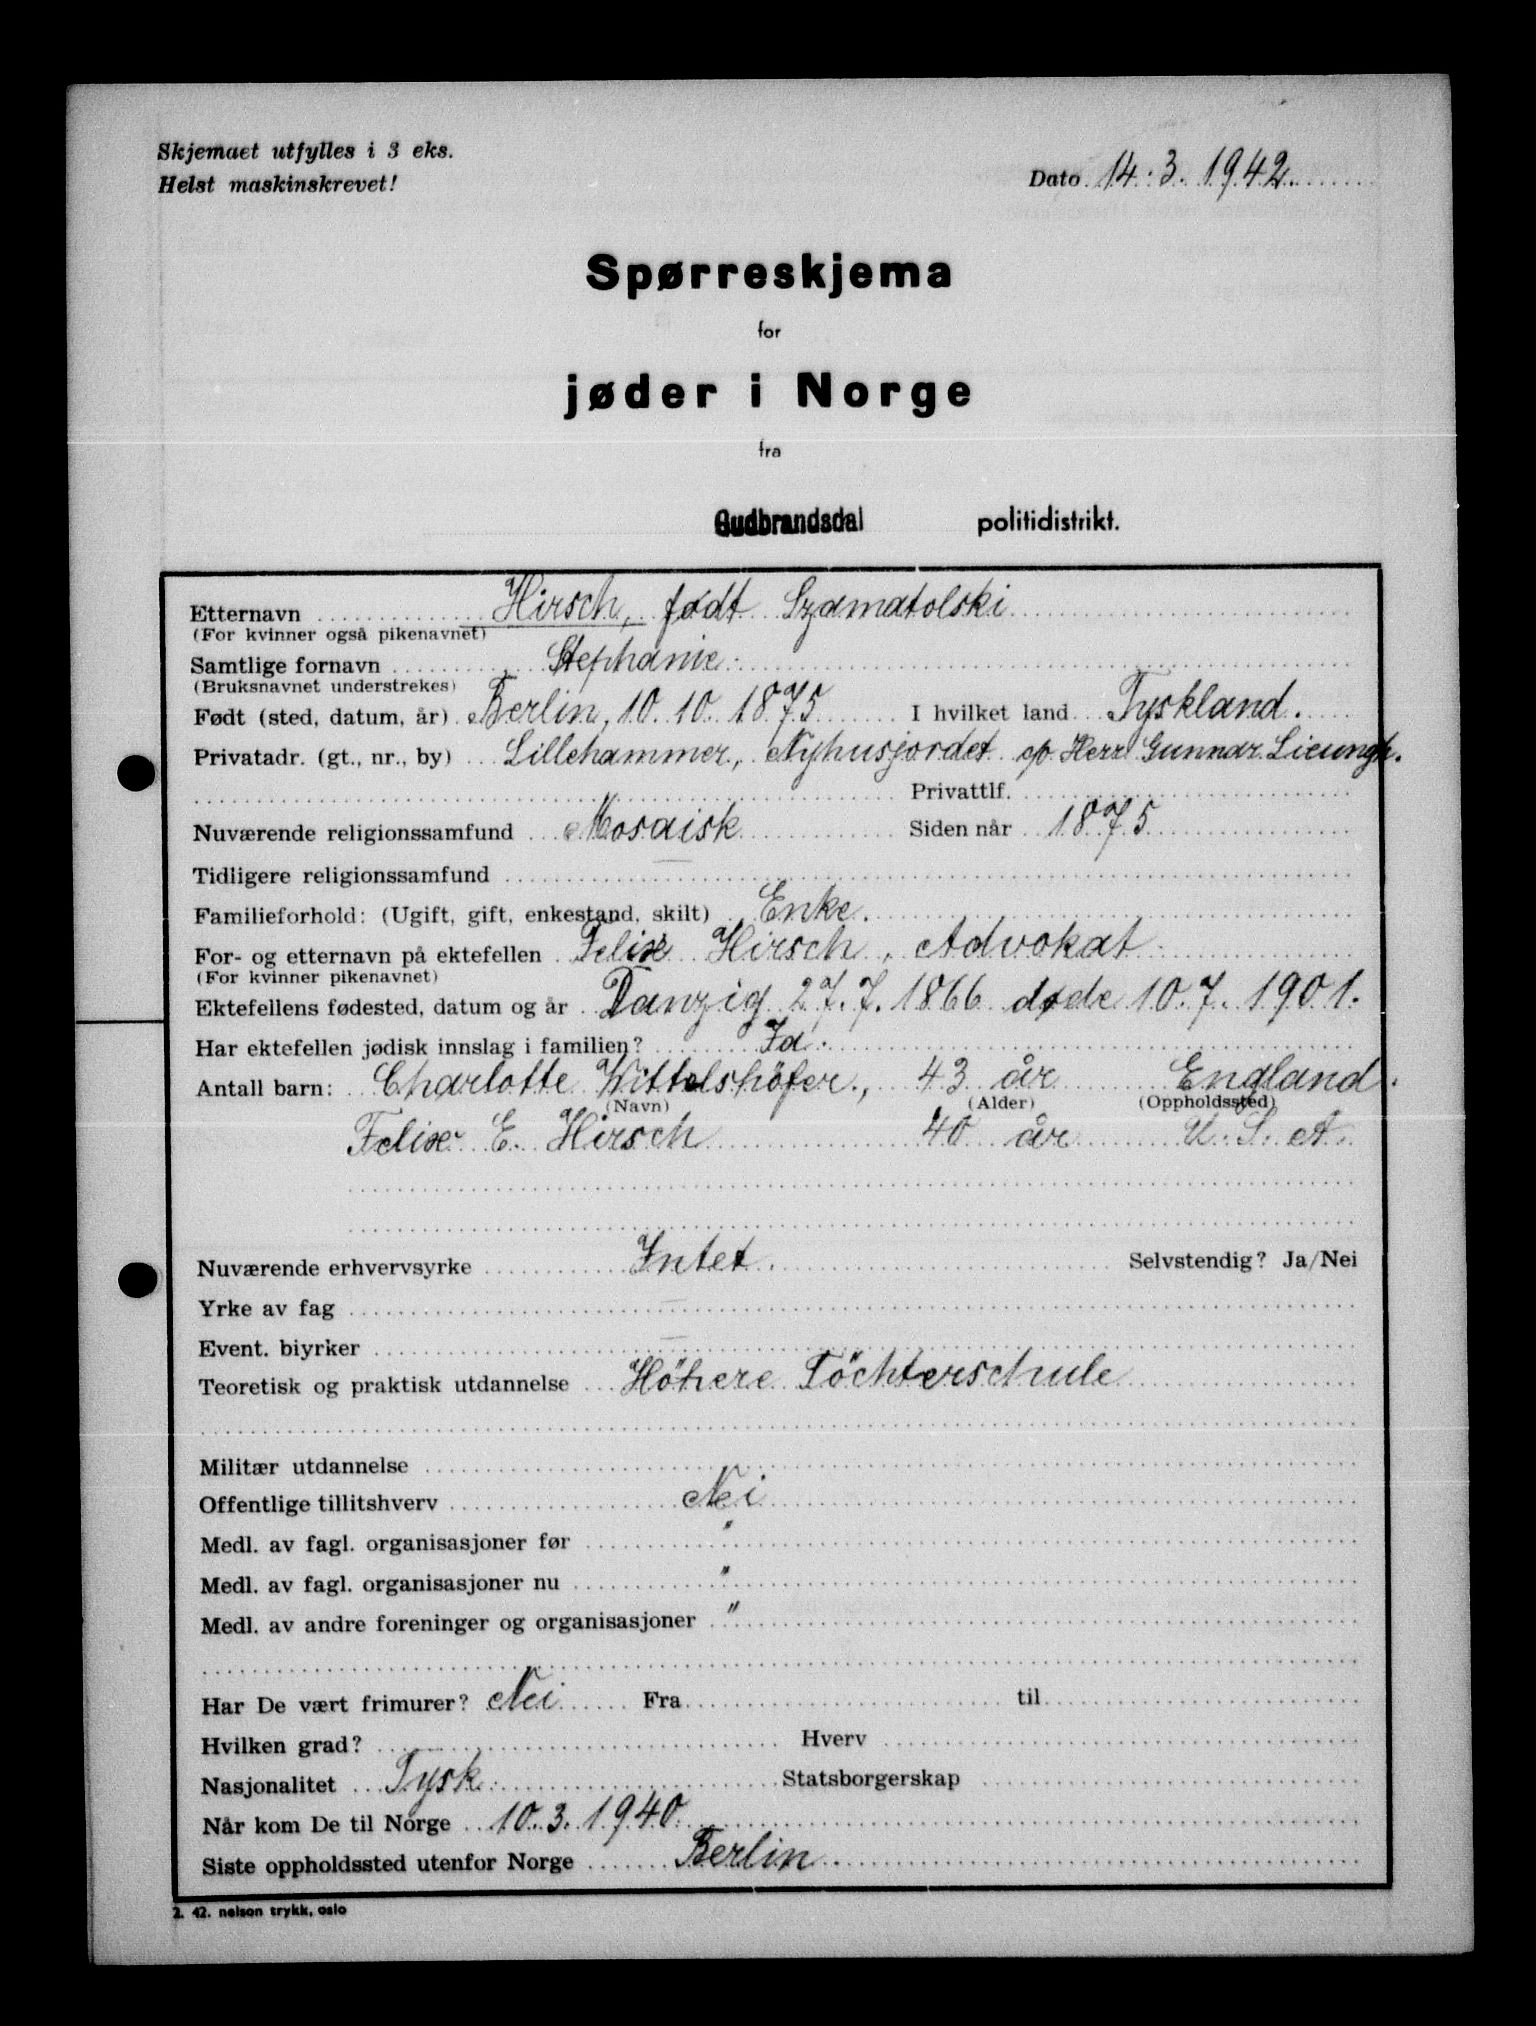 Skjemaet utfylles i 3 eks.
Helst maskinskrevet!
Dato 14.3.1942.
Spørreskjema
for
jøder i Norge
fra
Gudbrandsdal politidistrikt.
Etternavn Hirsch, født Szamatolski
(For kvinner også pikenavnet)
Samtlige fornavn Stephanie
(Bruksnavnet understrekes)
Født (sted, datum, år) Berlin, 10.10.1875 I hvilket land Tyskland.
Privatadr. (gt., nr., by) Lillehammer, Nyhusjordet c/o Herr Gunnar Lieungh.
Privattlf.
Nuværende religionssamfund Mosaisk Siden når 1875
Tidligere religionssamfund —
Familieforhold: (Ugift, gift, enkestand, skilt) Enke.
For- og etternavn på ektefellen Felix Hirsch, Advokat
(For kvinner pikenavnet)
Ektefellens fødested, datum og år Danzig 27.7.1866 døde 10.7.1901.
Har ektefellen jødisk innslag i familien? Ja.
Antall barn: Charlotte Wittelshöfer, 43 år England.
(Navn) (Alder) (Oppholdssted)
Felix E. Hirsch 40 år U.S.A.
Nuværende erhvervsyrke Intet. Selvstendig? Ja/Nei
Yrke av fag —
Event. biyrker —
Teoretisk og praktisk utdannelse Höhere Töchterschule
Militær utdannelse
Offentlige tillitshverv Nei
Medl. av fagl. organisasjoner før "
Medl. av fagl. organisasjoner nu "
Medl. av andre foreninger og organisasjoner "
Har De vært frimurer? Nei Fra til
Hvilken grad? Hverv
Nasjonalitet Tysk. Statsborgerskap
Når kom De til Norge 10.3.1940
Siste oppholdssted utenfor Norge Berlin.
2. 42. nelson trykk, oslo